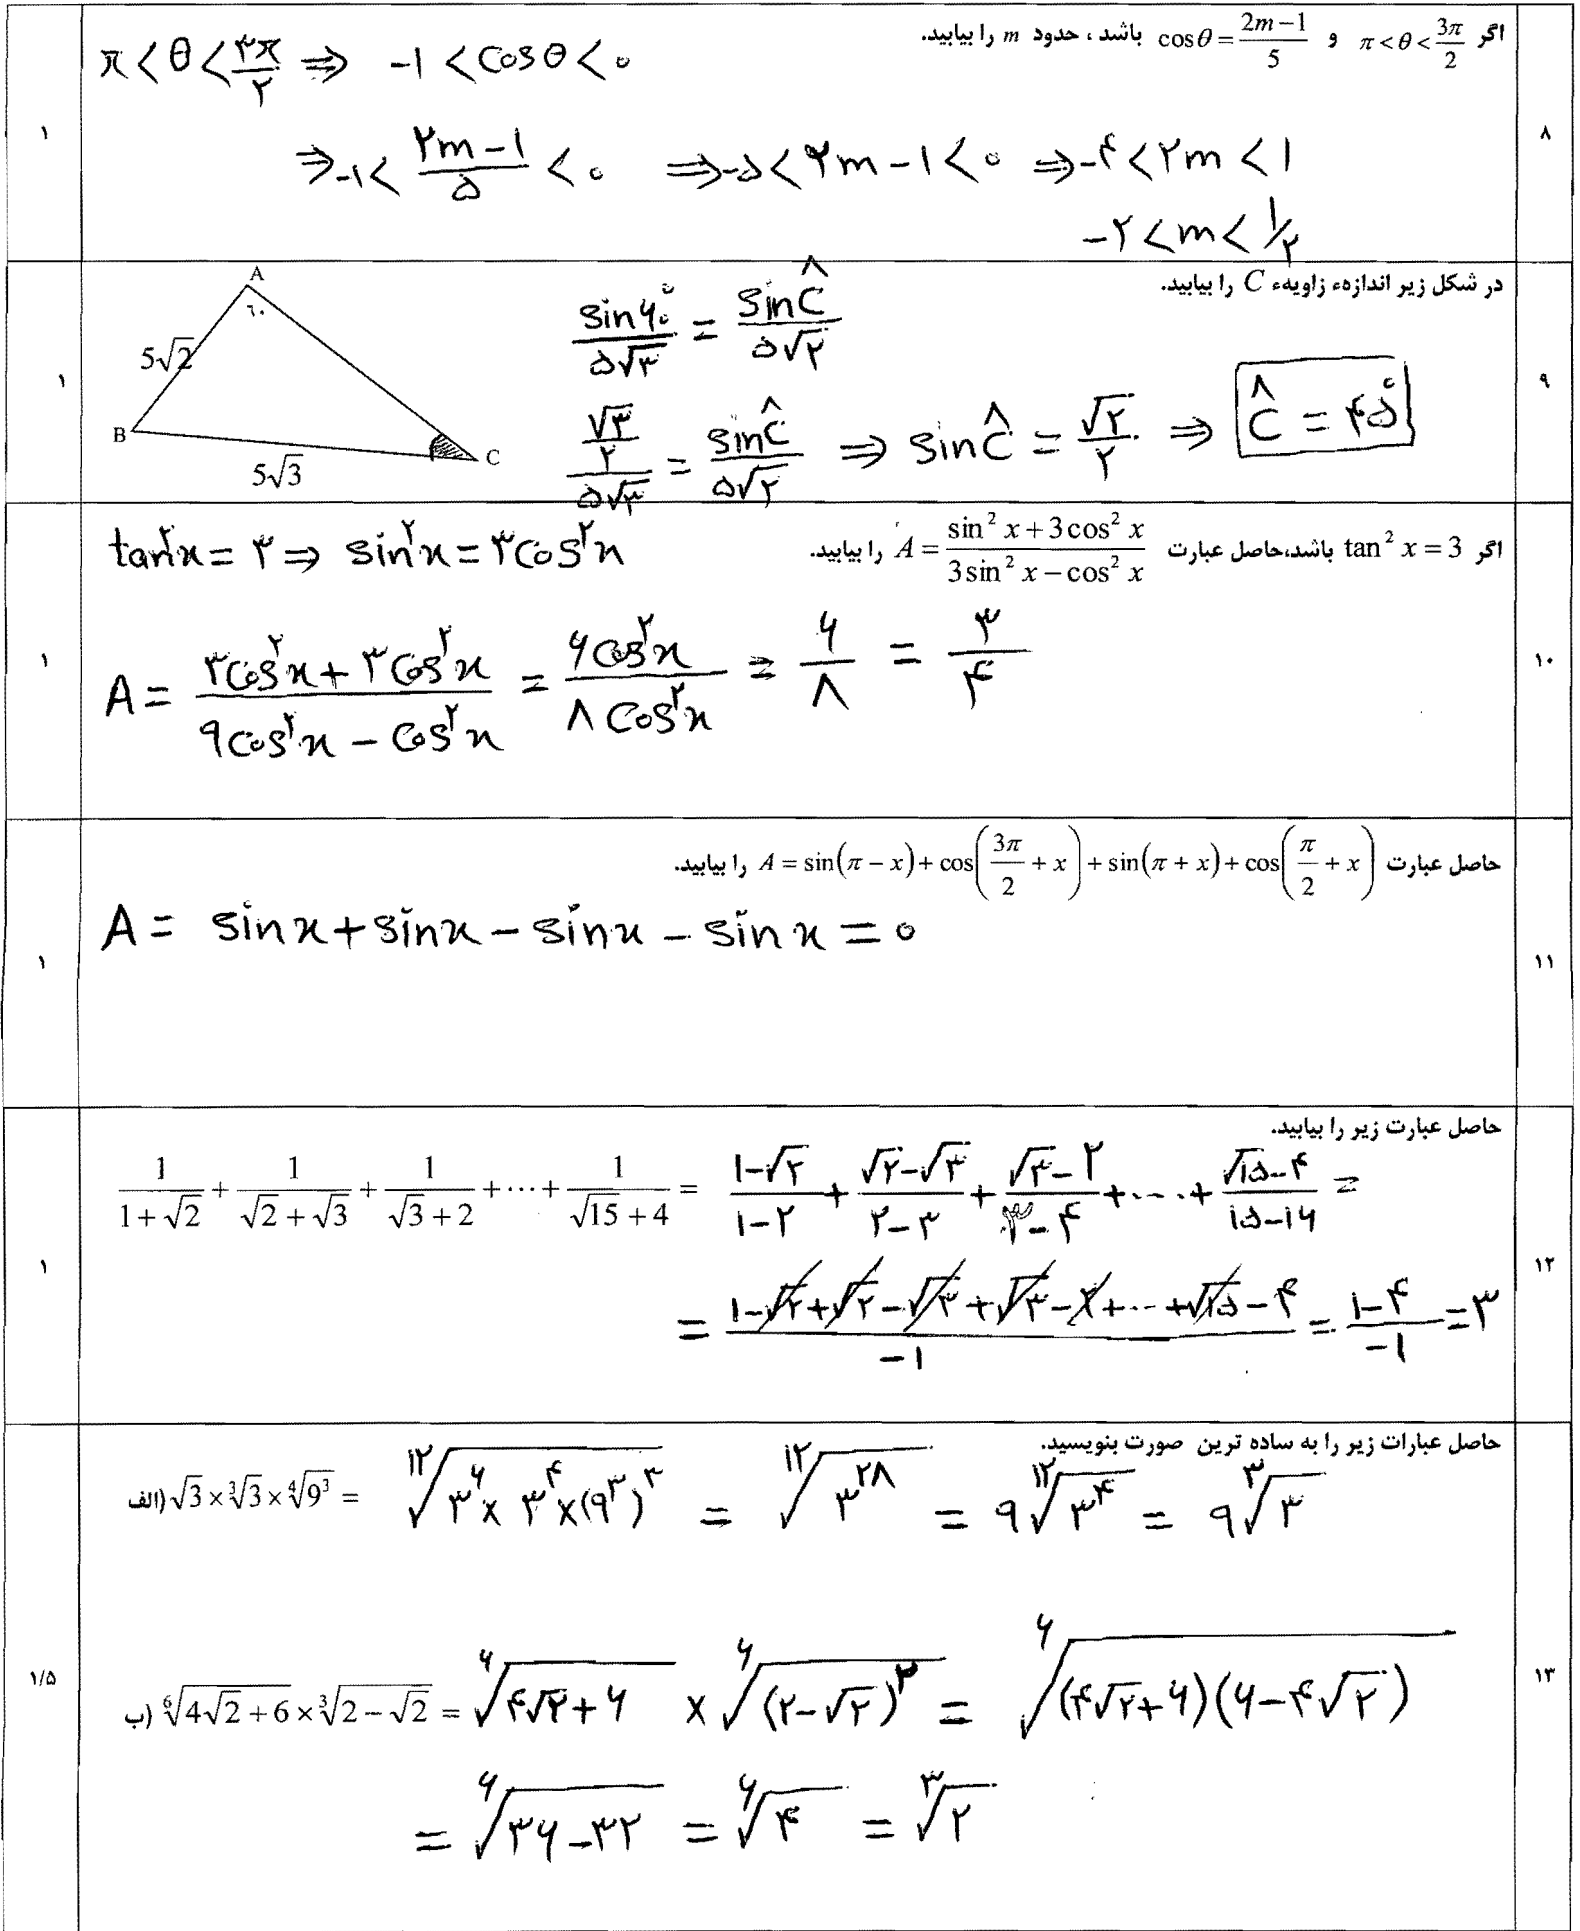 ۸
اگر π<θ<3π/2 و cosθ=(2m−1)/5 باشد ، حدود m را بیابید.
π<θ<۳π/۲ ⇒ −۱<cosθ<۰
⇒ −۱<(۲m−۱)/۵<۰ ⇒ −۵<۲m−۱<۰ ⇒ −۴<۲m<۱
−۲<m<۱/۲
۱
۹
در شکل زیر اندازهء زاویهء C را بیابید.
A
٦٠
5√2
B
C
5√3
sin۶۰°/۵√۳ = sinĈ/۵√۲
(√۳/۲)/۵√۳ = sinĈ/۵√۲ ⇒ sinĈ = √۲/۲ ⇒ Ĉ = ۴۵°
۱
۱۰
اگر tan² x = 3 باشد،حاصل عبارت A = (sin² x + 3cos² x)/(3sin² x − cos² x) را بیابید.
tan²x = ۳ ⇒ sin²x = ۳cos²x
A = (۳cos²x + ۳cos²x)/(۹cos²x − cos²x) = ۶cos²x/۸cos²x = ۶/۸ = ۳/۴
۱
۱۱
حاصل عبارت A = sin(π − x) + cos(3π/2 + x) + sin(π + x) + cos(π/2 + x) را بیابید.
A = sinx + sinx − sinx − sinx = ۰
۱
۱۲
حاصل عبارت زیر را بیابید.
1/(1+√2) + 1/(√2+√3) + 1/(√3+2) + ⋯ + 1/(√15+4) = (۱−√۲)/(۱−۲) + (√۲−√۳)/(۲−۳) + (√۳−۲)/(۳−۴) + ... + (√۱۵−۴)/(۱۵−۱۶) =
= (۱−√۲+√۲−√۳+√۳−۲+...+√۱۵−۴)/−۱ = (۱−۴)/−۱ = ۳
۱
۱۳
حاصل عبارات زیر را به ساده ترین صورت بنویسید.
الف) √3 × ∛3 × ∜9³ = ¹²√(۳⁶ × ۳⁴ × (۹³)³) = ¹²√۳²⁸ = ۹ ¹²√۳⁴ = ۹ ³√۳
ب) ⁶√(4√2+6) × ³√(2−√2) = ⁶√(۴√۲+۶) × ⁶√((۲−√۲)²) = ⁶√((۴√۲+۶)(۶−۴√۲))
= ⁶√(۳۶−۳۲) = ⁶√۴ = ³√۲
۱/۵